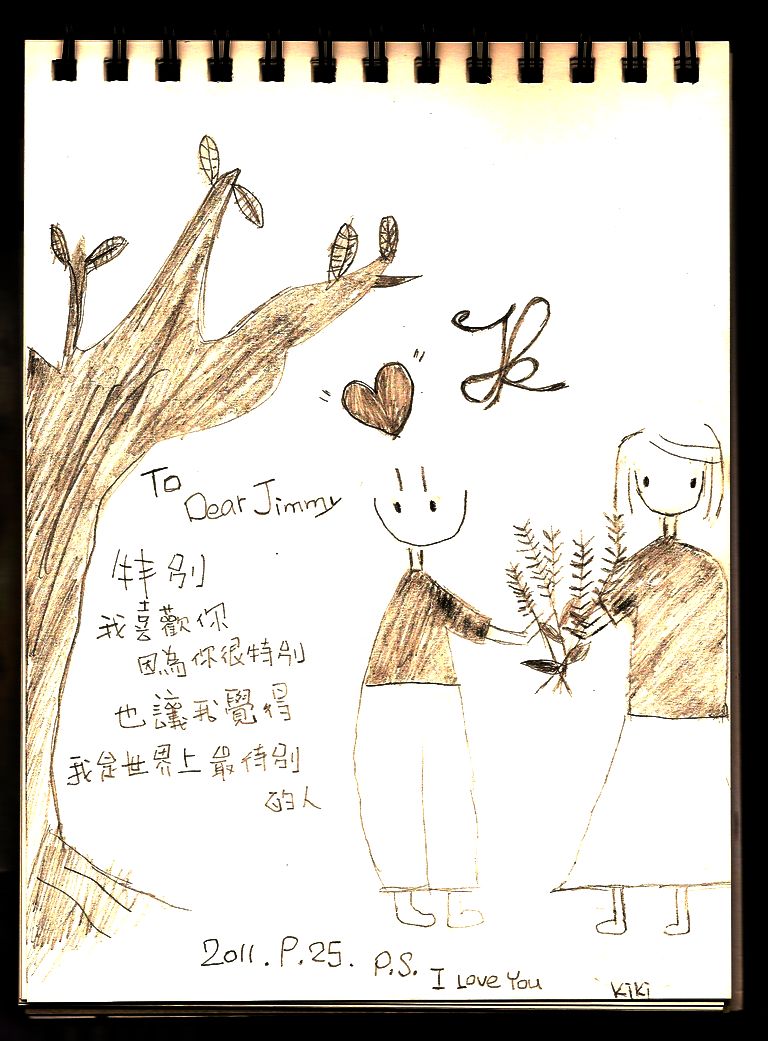 To
Dear Jimmy
特別
我喜歡你
因為你很特別
也讓我覺得
我是世界上最特別
的人
2011.P.25.
P.S.
I Love You
KiKi